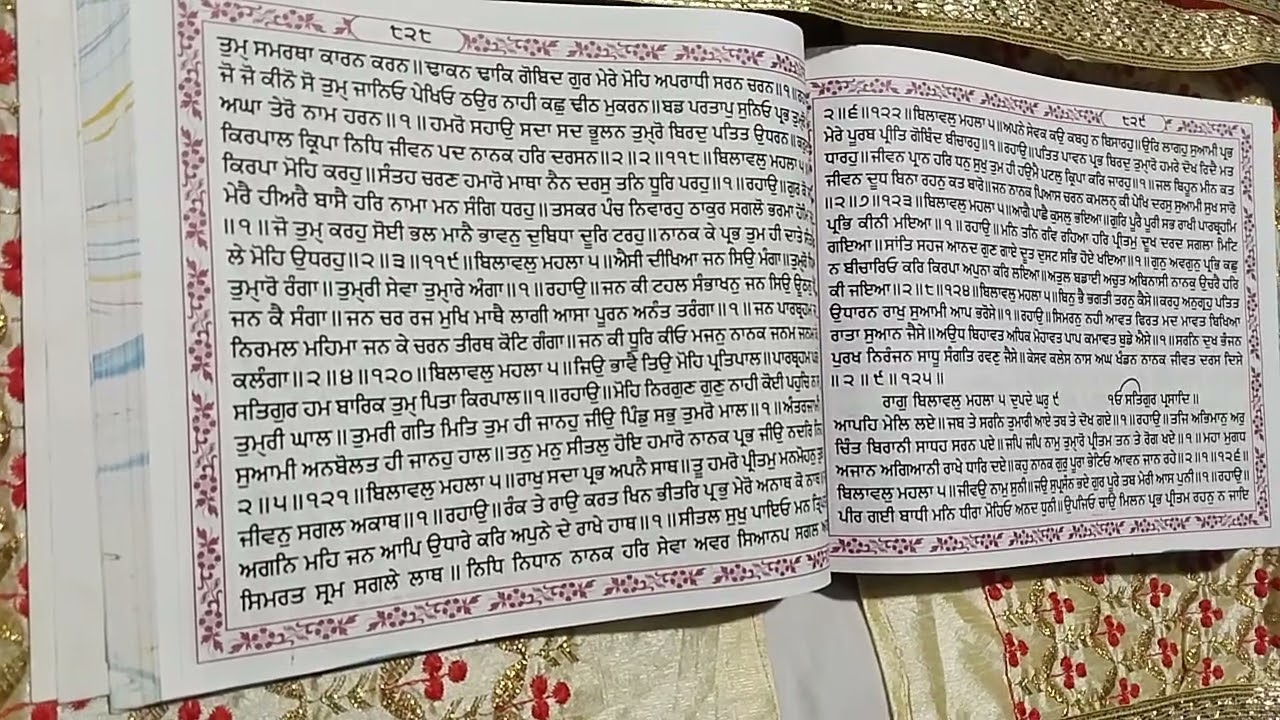 ੮੨੮
ਤੁਮ੍ ਸਮਰਥਾ ਕਾਰਨ ਕਰਨ॥ਢਾਕਨ ਢਾਕਿ ਗੋਬਿਦ ਗੁਰ ਮੇਰੇ ਮੋਹਿ ਅਪਰਾਧੀ ਸਰਨ ਚਰਨ॥੧॥
ਜੋ ਜੋ ਕੀਨੋ ਸੋ ਤੁਮ੍ ਜਾਨਿਓ ਪੇਖਿਓ ਠਉਰ ਨਾਹੀ ਕਛੁ ਢੀਠ ਮੁਕਰਨ॥ਬਡ ਪਰਤਾਪੁ ਸੁਨਿਓ ਪ੍ਰਭ ਤੁਮ੍ਰੋ
ਅਘਾ ਤੇਰੋ ਨਾਮ ਹਰਨ॥੧॥ਹਮਰੋ ਸਹਾਉ ਸਦਾ ਸਦ ਭੂਲਨ ਤੁਮ੍ਰੋ ਬਿਰਦੁ ਪਤਿਤ ਉਧਰਨ॥
ਕਿਰਪਾਲ ਕ੍ਰਿਪਾ ਨਿਧਿ ਜੀਵਨ ਪਦ ਨਾਨਕ ਹਰਿ ਦਰਸਨ॥੨॥੨॥੧੧੮॥ਬਿਲਾਵਲੁ ਮਹਲਾ ੫॥
ਕਿਰਪਾ ਮੋਹਿ ਕਰਹੁ॥ਸੰਤਹ ਚਰਣ ਹਮਾਰੋ ਮਾਥਾ ਨੈਨ ਦਰਸੁ ਤਨਿ ਧੂਰਿ ਪਰਹੁ॥੧॥ਰਹਾਉ॥ਗੁਰ ਕੋ
ਮੇਰੈ ਹੀਅਰੈ ਬਾਸੈ ਹਰਿ ਨਾਮਾ ਮਨ ਸੰਗਿ ਧਰਹੁ॥ਤਸਕਰ ਪੰਚ ਨਿਵਾਰਹੁ ਠਾਕੁਰ ਸਗਲੋ ਭਰਮਾ
॥੧॥ਜੋ ਤੁਮ੍ ਕਰਹੁ ਸੋਈ ਭਲ ਮਾਨੈ ਭਾਵਨੁ ਦੁਬਿਧਾ ਦੂਰਿ ਟਰਹੁ॥ਨਾਨਕ ਕੇ ਪ੍ਰਭ ਤੁਮ ਹੀ ਦਾਤੇ
ਲੇ ਮੋਹਿ ਉਧਰਹੁ॥੨॥੩॥੧੧੯॥ਬਿਲਾਵਲੁ ਮਹਲਾ ੫॥ਐਸੀ ਦੀਖਿਆ ਜਨ ਸਿਉ ਮੰਗਾ॥ਤੁਮ੍ਰੋ
ਤੁਮ੍ਾਰੋ ਰੰਗਾ॥ਤੁਮ੍ਰੀ ਸੇਵਾ ਤੁਮ੍ਾਰੇ ਅੰਗਾ॥੧॥ਰਹਾਉ॥ਜਨ ਕੀ ਟਹਲ ਸੰਭਾਖਨੁ ਜਨ ਸਿਉ
ਜਨ ਕੈ ਸੰਗਾ॥ਜਨ ਚਰ ਰਜ ਮੁਖਿ ਮਾਥੈ ਲਾਗੀ ਆਸਾ ਪੂਰਨ ਅਨੰਤ ਤਰੰਗਾ॥੧॥ਜਨ ਪਾਰਬ੍ਰਹਮ
ਨਿਰਮਲ ਮਹਿਮਾ ਜਨ ਕੇ ਚਰਨ ਤੀਰਥ ਕੋਟਿ ਗੰਗਾ॥ਜਨ ਕੀ ਧੂਰਿ ਕੀਓ ਮਜਨੁ ਨਾਨਕ ਜਨਮ ਜਨਮ
ਕਲੰਗਾ॥੨॥੪॥੧੨੦॥ਬਿਲਾਵਲੁ ਮਹਲਾ ੫॥ਜਿਉ ਭਾਵੈ ਤਿਉ ਮੋਹਿ ਪ੍ਰਤਿਪਾਲ॥ਪਾਰਬ੍ਰਹਮ
ਸਤਿਗੁਰ ਹਮ ਬਾਰਿਕ ਤੁਮ੍ ਪਿਤਾ ਕਿਰਪਾਲ॥੧॥ਰਹਾਉ॥ਮੋਹਿ ਨਿਰਗੁਣ ਗੁਣੁ ਨਾਹੀ ਕੋਈ ਪਹੁਚਿ
ਤੁਮ੍ਰੀ ਘਾਲ॥ਤੁਮਰੀ ਗਤਿ ਮਿਤਿ ਤੁਮ ਹੀ ਜਾਨਹੁ ਜੀਉ ਪਿੰਡੁ ਸਭੁ ਤੁਮਰੋ ਮਾਲ॥੧॥
ਸੁਆਮੀ ਅਨਬੋਲਤ ਹੀ ਜਾਨਹੁ ਹਾਲ॥ਤਨੁ ਮਨੁ ਸੀਤਲੁ ਹੋਇ ਹਮਾਰੋ ਨਾਨਕ ਪ੍ਰਭ ਜੀਉ ਨਦਰਿ
੨॥੫॥੧੨੧॥ਬਿਲਾਵਲੁ ਮਹਲਾ ੫॥ਰਾਖੁ ਸਦਾ ਪ੍ਰਭ ਅਪਨੈ ਸਾਥ॥ਤੂ ਹਮਰੋ ਪ੍ਰੀਤਮੁ ਮਨਮੋਹਨੁ
ਜੀਵਨੁ ਸਗਲ ਅਕਾਥ॥੧॥ਰਹਾਉ॥ਰੰਕ ਤੇ ਰਾਉ ਕਰਤ ਖਿਨ ਭੀਤਰਿ ਪ੍ਰਭੁ ਮੇਰੋ ਅਨਾਥ ਕੋ ਨਾਥ
ਅਗਨਿ ਮਹਿ ਜਨ ਆਪਿ ਉਧਾਰੇ ਕਰਿ ਅਪੁਨੇ ਦੇ ਰਾਖੇ ਹਾਥ॥੧॥ਸੀਤਲ ਸੁਖੁ ਪਾਇਓ ਮਨ
ਸਿਮਰਤ ਸ੍ਰਮ ਸਗਲੇ ਲਾਥ॥ਨਿਧਿ ਨਿਧਾਨ ਨਾਨਕ ਹਰਿ ਸੇਵਾ ਅਵਰ ਸਿਆਨਪ ਸਗਲ
੮੨੯
੨॥੬॥੧੨੨॥ਬਿਲਾਵਲੁ ਮਹਲਾ ੫॥ਅਪਨੇ ਸੇਵਕ ਕਉ ਕਬਹੁ ਨ ਬਿਸਾਰਹੁ॥ਉਰਿ ਲਾਗਹੁ ਸੁਆਮੀ ਪ੍ਰਭ
ਮੇਰੇ ਪੂਰਬ ਪ੍ਰੀਤਿ ਗੋਬਿੰਦ ਬੀਚਾਰਹੁ॥੧॥ਰਹਾਉ॥ਪਤਿਤ ਪਾਵਨ ਪ੍ਰਭ ਬਿਰਦੁ ਤੁਮ੍ਾਰੋ ਹਮਰੇ ਦੋਖ ਰਿਦੈ ਮਤ
ਧਾਰਹੁ॥ਜੀਵਨ ਪ੍ਰਾਨ ਹਰਿ ਧਨੁ ਸੁਖੁ ਤੁਮ ਹੀ ਹਉਮੈ ਪਟਲੁ ਕ੍ਰਿਪਾ ਕਰਿ ਜਾਰਹੁ॥੧॥ਜਲ ਬਿਹੂਨ ਮੀਨ ਕਤ
ਜੀਵਨ ਦੂਧ ਬਿਨਾ ਰਹਨੁ ਕਤ ਬਾਰੋ॥ਜਨ ਨਾਨਕ ਪਿਆਸ ਚਰਨ ਕਮਲਨ੍ ਕੀ ਪੇਖਿ ਦਰਸੁ ਸੁਆਮੀ ਸੁਖ ਸਾਰੋ
॥੨॥੭॥੧੨੩॥ਬਿਲਾਵਲੁ ਮਹਲਾ ੫॥ਆਗੈ ਪਾਛੈ ਕੁਸਲੁ ਭਇਆ॥ਗੁਰਿ ਪੂਰੈ ਪੂਰੀ ਸਭ ਰਾਖੀ ਪਾਰਬ੍ਰਹਮਿ
ਪ੍ਰਭਿ ਕੀਨੀ ਮਇਆ॥੧॥ਰਹਾਉ॥ਮਨਿ ਤਨਿ ਰਵਿ ਰਹਿਆ ਹਰਿ ਪ੍ਰੀਤਮੁ ਦੂਖ ਦਰਦ ਸਗਲਾ ਮਿਟਿ
ਗਇਆ॥ਸਾਂਤਿ ਸਹਜ ਆਨਦ ਗੁਣ ਗਾਏ ਦੂਤ ਦੁਸਟ ਸਭਿ ਹੋਏ ਖਇਆ॥੧॥ਗੁਨੁ ਅਵਗੁਨੁ ਪ੍ਰਭਿ ਕਛੁ
ਨ ਬੀਚਾਰਿਓ ਕਰਿ ਕਿਰਪਾ ਅਪੁਨਾ ਕਰਿ ਲਇਆ॥ਅਤੁਲ ਬਡਾਈ ਅਚੁਤ ਅਬਿਨਾਸੀ ਨਾਨਕੁ ਉਚਰੈ ਹਰਿ
ਕੀ ਜਇਆ॥੨॥੮॥੧੨੪॥ਬਿਲਾਵਲੁ ਮਹਲਾ ੫॥ਬਿਨੁ ਭੈ ਭਗਤੀ ਤਰਨੁ ਕੈਸੇ॥ਕਰਹੁ ਅਨੁਗ੍ਰਹੁ ਪਤਿਤ
ਉਧਾਰਨ ਰਾਖੁ ਸੁਆਮੀ ਆਪ ਭਰੋਸੇ॥੧॥ਰਹਾਉ॥ਸਿਮਰਨੁ ਨਹੀ ਆਵਤ ਫਿਰਤ ਮਦ ਮਾਵਤ ਬਿਖਿਆ
ਰਾਤਾ ਸੁਆਨ ਜੈਸੇ॥ਅਉਧ ਬਿਹਾਵਤ ਅਧਿਕ ਮੋਹਾਵਤ ਪਾਪ ਕਮਾਵਤ ਬੁਡੇ ਐਸੇ॥੧॥ਸਰਨਿ ਦੁਖ ਭੰਜਨ
ਪੁਰਖ ਨਿਰੰਜਨ ਸਾਧੂ ਸੰਗਤਿ ਰਵਣੁ ਜੈਸੇ॥ਕੇਸਵ ਕਲੇਸ ਨਾਸ ਅਘ ਖੰਡਨ ਨਾਨਕ ਜੀਵਤ ਦਰਸ ਦਿਸੇ
॥੨॥੯॥੧੨੫॥
ਰਾਗੁ ਬਿਲਾਵਲੁ ਮਹਲਾ ੫ ਦੁਪਦੇ ਘਰੁ ੯ ੴ ਸਤਿਗੁਰ ਪ੍ਰਸਾਦਿ॥
ਆਪਹਿ ਮੇਲਿ ਲਏ॥ਜਬ ਤੇ ਸਰਨਿ ਤੁਮਾਰੀ ਆਏ ਤਬ ਤੇ ਦੋਖ ਗਏ॥੧॥ਰਹਾਉ॥ਤਜਿ ਅਭਿਮਾਨੁ ਅਰੁ
ਚਿੰਤ ਬਿਰਾਨੀ ਸਾਧਹ ਸਰਨ ਪਏ॥ਜਪਿ ਜਪਿ ਨਾਮੁ ਤੁਮ੍ਾਰੋ ਪ੍ਰੀਤਮ ਤਨ ਤੇ ਰੋਗ ਖਏ॥੧॥ਮਹਾ ਮੁਗਧ
ਅਜਾਨ ਅਗਿਆਨੀ ਰਾਖੇ ਧਾਰਿ ਦਏ॥ਕਹੁ ਨਾਨਕ ਗੁਰੁ ਪੂਰਾ ਭੇਟਿਓ ਆਵਨ ਜਾਨ ਰਹੇ॥੨॥੧॥੧੨੬॥
ਬਿਲਾਵਲੁ ਮਹਲਾ ੫॥ਜੀਵਉ ਨਾਮੁ ਸੁਨੀ॥ਜਉ ਸੁਪ੍ਰਸੰਨ ਭਏ ਗੁਰ ਪੂਰੇ ਤਬ ਮੇਰੀ ਆਸ ਪੁਨੀ॥੧॥ਰਹਾਉ॥
ਪੀਰ ਗਈ ਬਾਧੀ ਮਨਿ ਧੀਰਾ ਮੋਹਿਓ ਅਨਦ ਧੁਨੀ॥ਉਪਜਿਓ ਚਾਉ ਮਿਲਨ ਪ੍ਰਭ ਪ੍ਰੀਤਮ ਰਹਨੁ ਨ ਜਾਇ